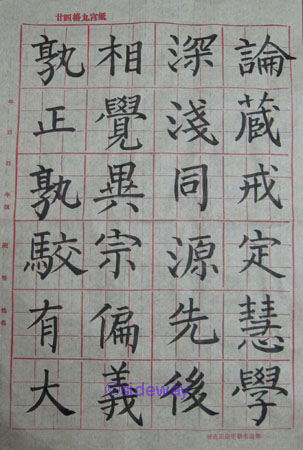 廿四格九宮紙
論蔵戒定慧學
深淺同源先後
相覺異宗偏義
孰正孰駮有大